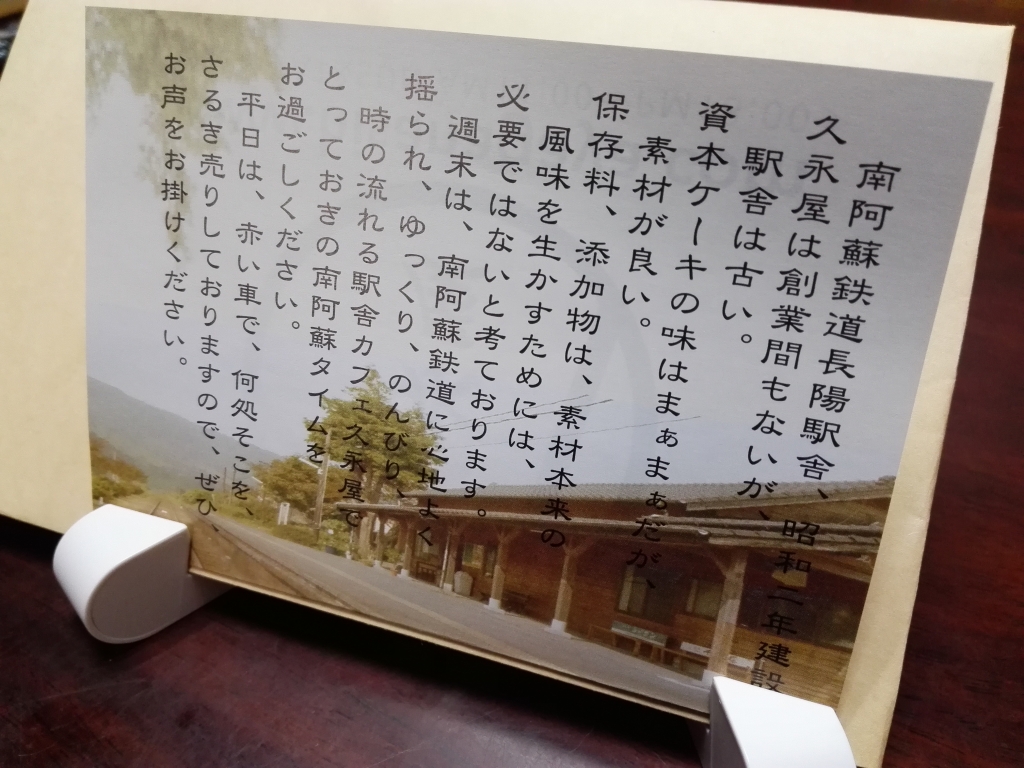 南阿蘇鉄道長陽駅舎、昭和二年建設
久永屋は創業間もないが、
駅舎は古い。
資本ケーキの味はまぁまぁだが、
素材が良い。
保存料、添加物は、素材本来の
風味を生かすためには、
必要ではないと考ております。
週末は、南阿蘇鉄道に心地よく
揺られ、ゆっくり、のんびり、
時の流れる駅舎カフェ久永屋で
とっておきの南阿蘇タイムを
お過ごしください。
平日は、赤い車で、何処そこを、
さるき売りしておりますので、ぜひ、
お声をお掛けください。